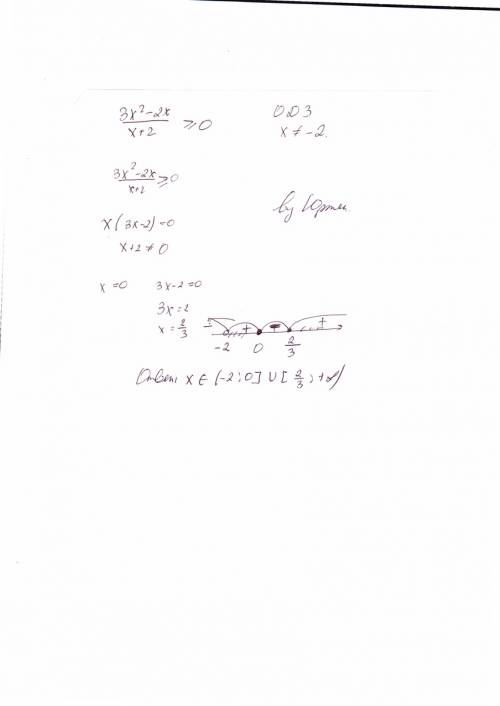 3x²-2x / x+2 ⩾ 0
ОДЗ
x ≠ -2.
3x²-2x / x+2 ⩾ 0
x(3x-2)=0
x+2 ≠ 0
by
x=0 3x-2=0
3x=2
x=2/3
- + - +
-2 0 2/3
Ответ: x ∈ (-2;0] ∪ [2/3;+∞)